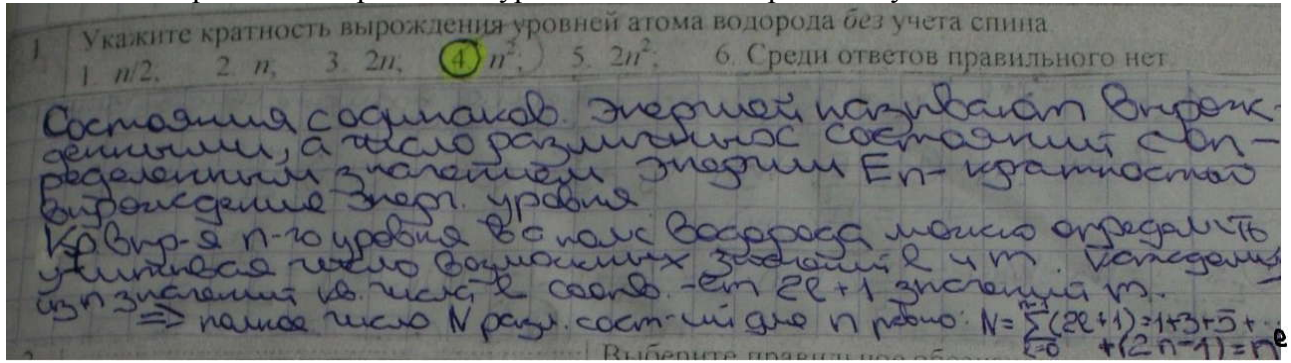 1. Укажите кратность вырождения уровней атома водорода без учета спина.
1. n/2; 2. n; 3. 2n; 4. n²; 5. 2n²; 6. Среди ответов правильного нет.
Состояния с одинаков. энергией называют вырож-
денными, а число различных состояний с оп-
ределенным значением энергии En - кратностью
вырождения энерг. уровня
Кр выр-я n-го уровня в атоме водорода можно определить
учитывая число возможных значений l и m. Каждому
из n значений кв. числа l соотв. -ет 2l+1 значений m.
=> полное число N разл. сост-ий для n равно: N=∑(2l+1)=1+3+5+...
l=0 +(2n-1)=n
Выберите